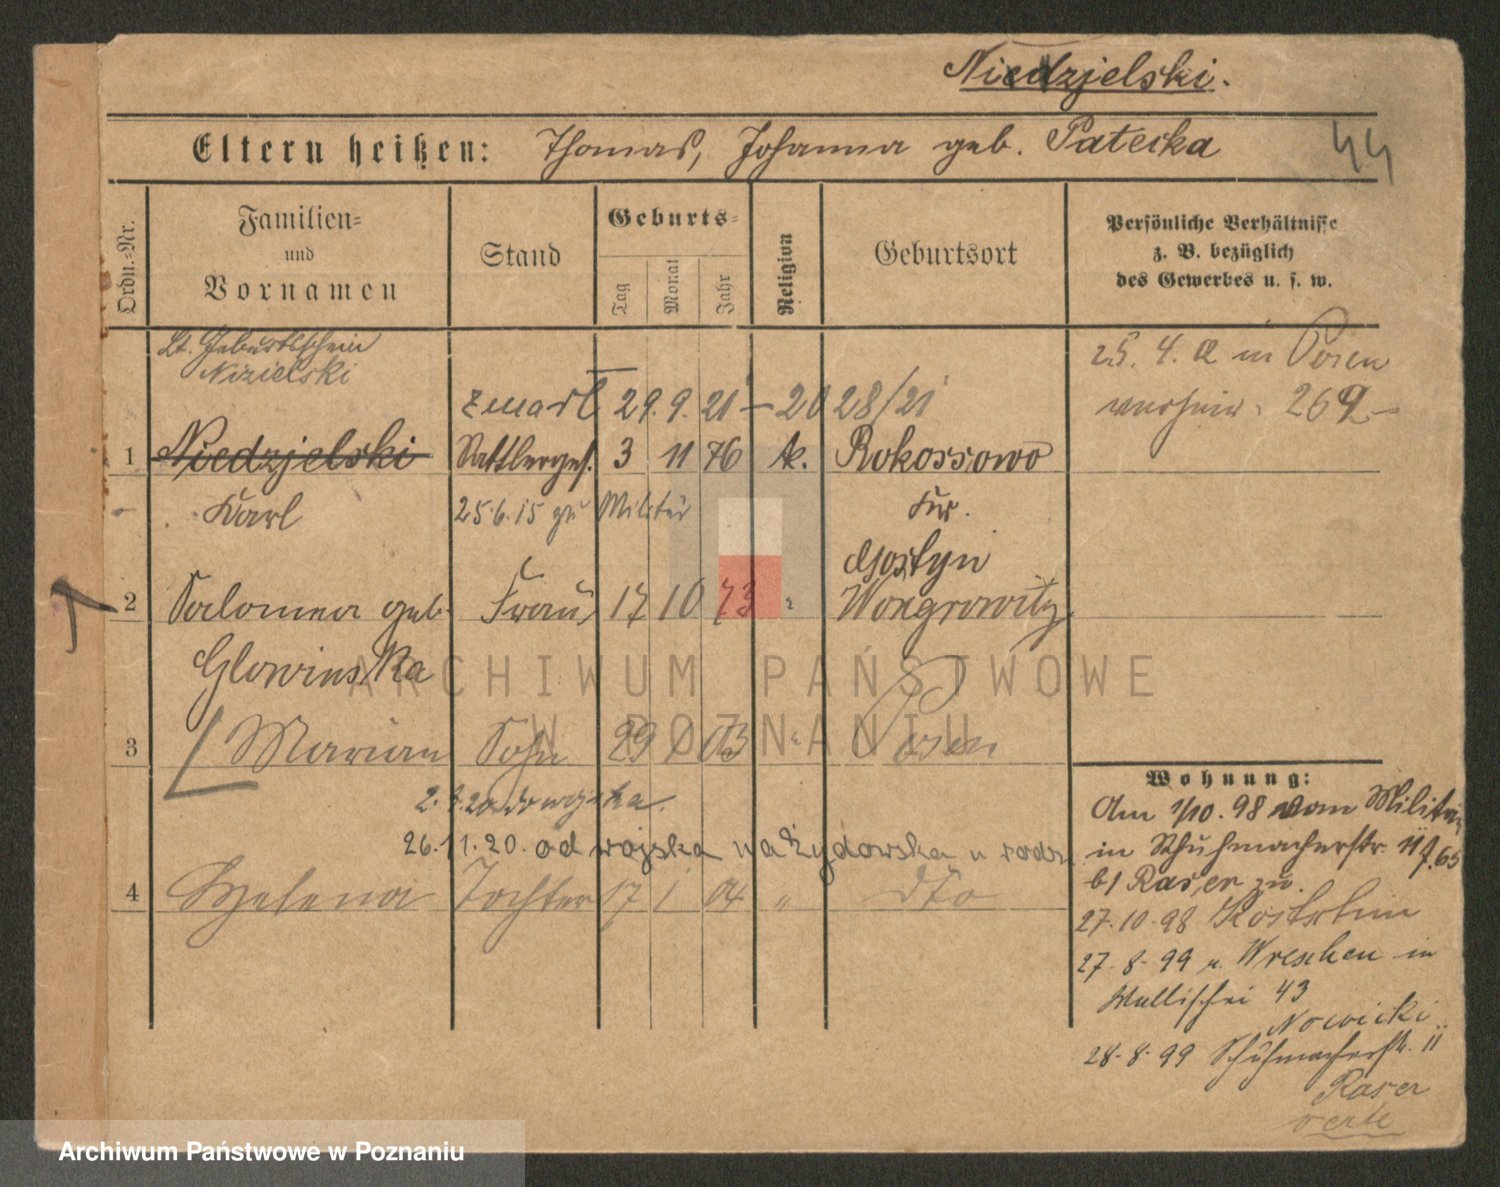 Niedzjelski.
Eltern heißen: Thomas, Johanna geb. Patecka
44
Ordn.-Nr.
Familien-
und
Vornamen
Stand
Geburts-
Tag
Monat
Jahr
Religion
Geburtsort
Persönliche Verhältnisse
z. B. bezüglich
des Gewerbes u. s. w.
Lt. Geburtsschein
Nizielski
25. 4. 02 in Posen
zmarł 29. 9. 21 - 2028/21
1 Niedzjelski Sattlerges. 3 11 76 k. Rokossowo
Karl 25.6.15 zu Militär
Kr.
Gostyn
2 Salomea geb. Frau 17 10 73 Wongrowitz
Glowinska
ARCHIWUM PAŃSTWOWE
W POZNANIU
3 Marian Sohn 29 1 03 " Posen
26.11.20. od wojska na Żydowska u rodz
4 Helena Tochter 17 1 04 " dto
Wohnung:
Am 1/10. 98 vom Militär
in Schuhmacherstr. 11
b/ Raser zu.
27.10.98
27.8.99 n. Wreschen in
Wallischei 43
Nowicki
28.8.99 Schuhmacherstr. 11
Raser
verte
Archiwum Państwowe w Poznaniu